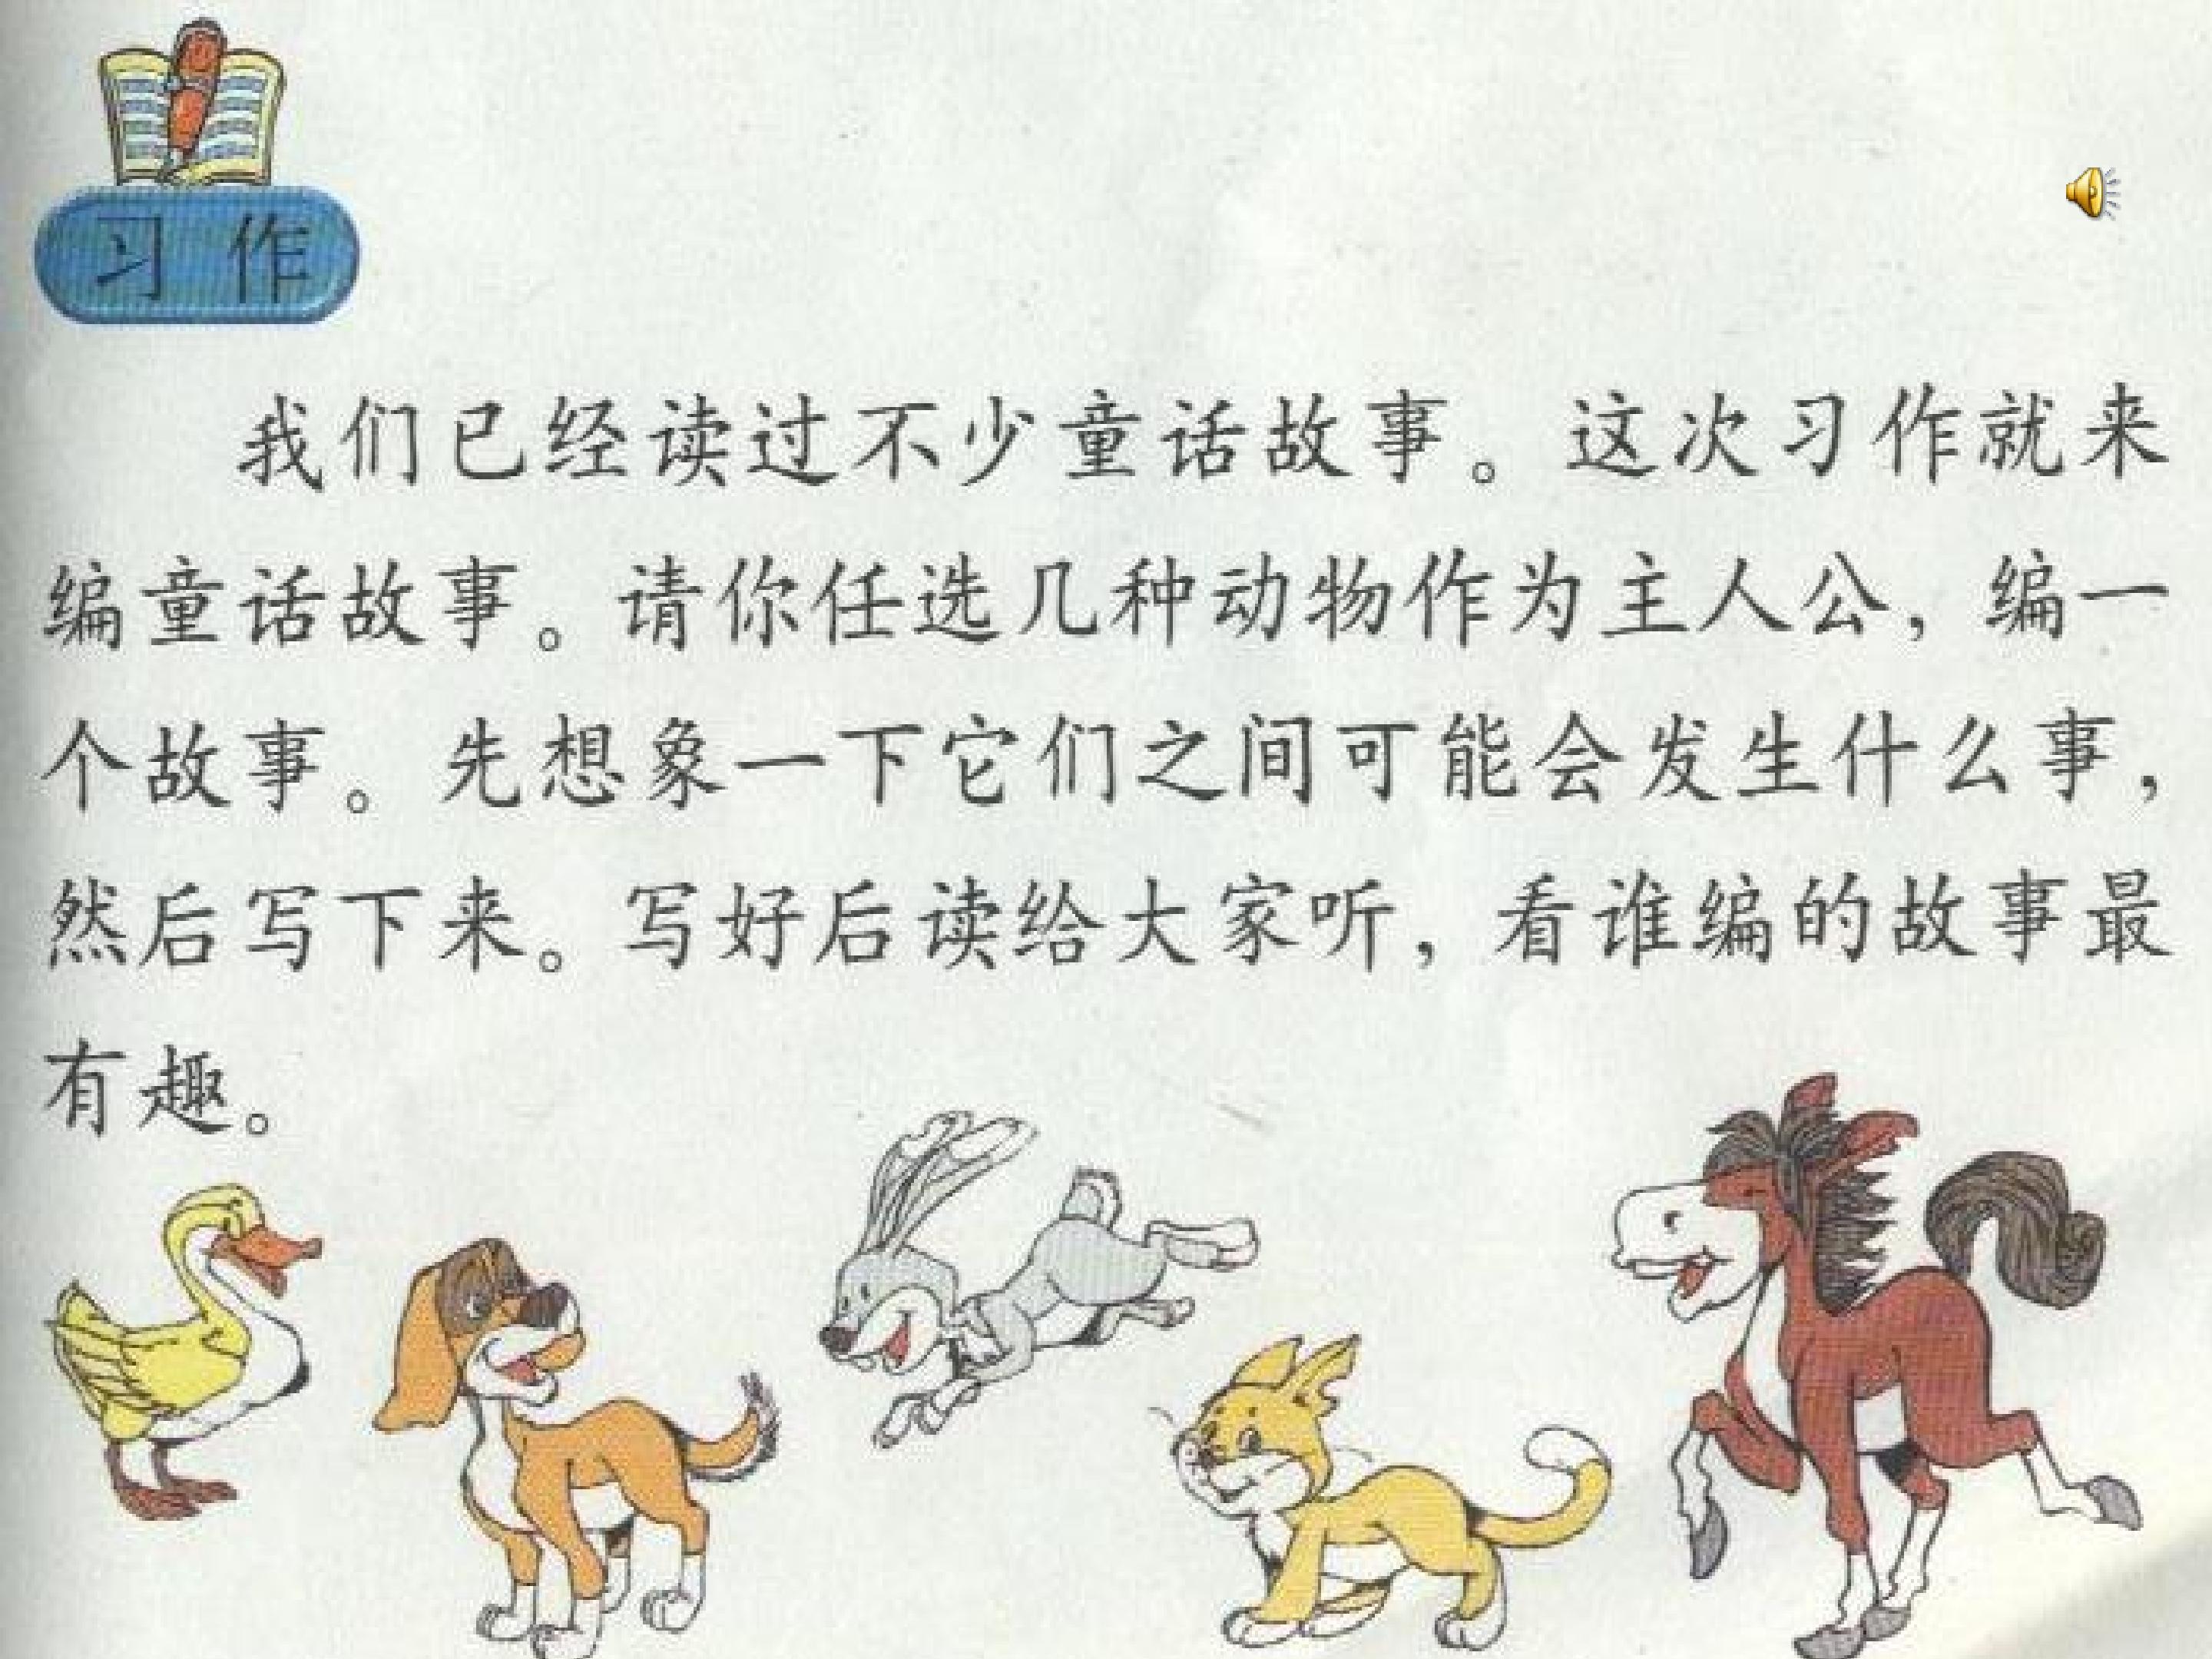 习 作
我们已经读过不少童话故事。这次习作就来
编童话故事。请你任选几种动物作为主人公，编一
个故事。先想象一下它们之间可能会发生什么事，
然后写下来。写好后读给大家听，看谁编的故事最
有趣。